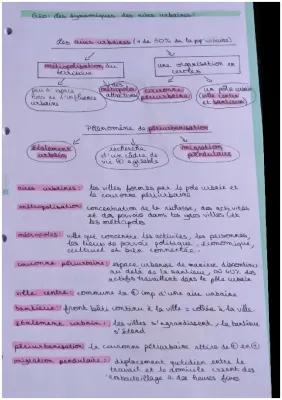 Géo: les dynamiques des aires urbaines
Les aires urbaines (+ de 80% de la population)
métropolisation du territoire
une organisation en cercles
peu d'espace hors de l'influence urbaine
des métropoles attractives
couronne périurbaine
un pôle urbain (ville centre et banlieue)
Phénomène de périurbanisation
étalement urbain
recherche d'un cadre de vie + agréable
migration pendulaire
aires urbaines: les villes formées par le pôle urbain et la couronne périurbaine
métropolisation: concentration de la richesse, des activités
et des pouvoirs dans les gros villes (et
les métropoles
métropoles: ville qui concentre les activités, les personnes,
les lieux de pouvoir politique, économique,
culturel et bien connectée.
couronne périurbaine: espace urbanisé de manière discontinue
au delà de la banlieue, où 40% des
actifs travaillent dans le pôle urbain
ville centre: commune la + imp d'une aire urbaine
banlieue: front bâti continu à la ville = collée à la ville
étalement urbain: les villes s'agrandissent, la banlieue
s'étend
périurbanisation: la couronne périurbaine attire de + en +
migration pendulaire: déplacement quotidien entre le
travail et le domicile créent des
embouteillage à des heures fixes